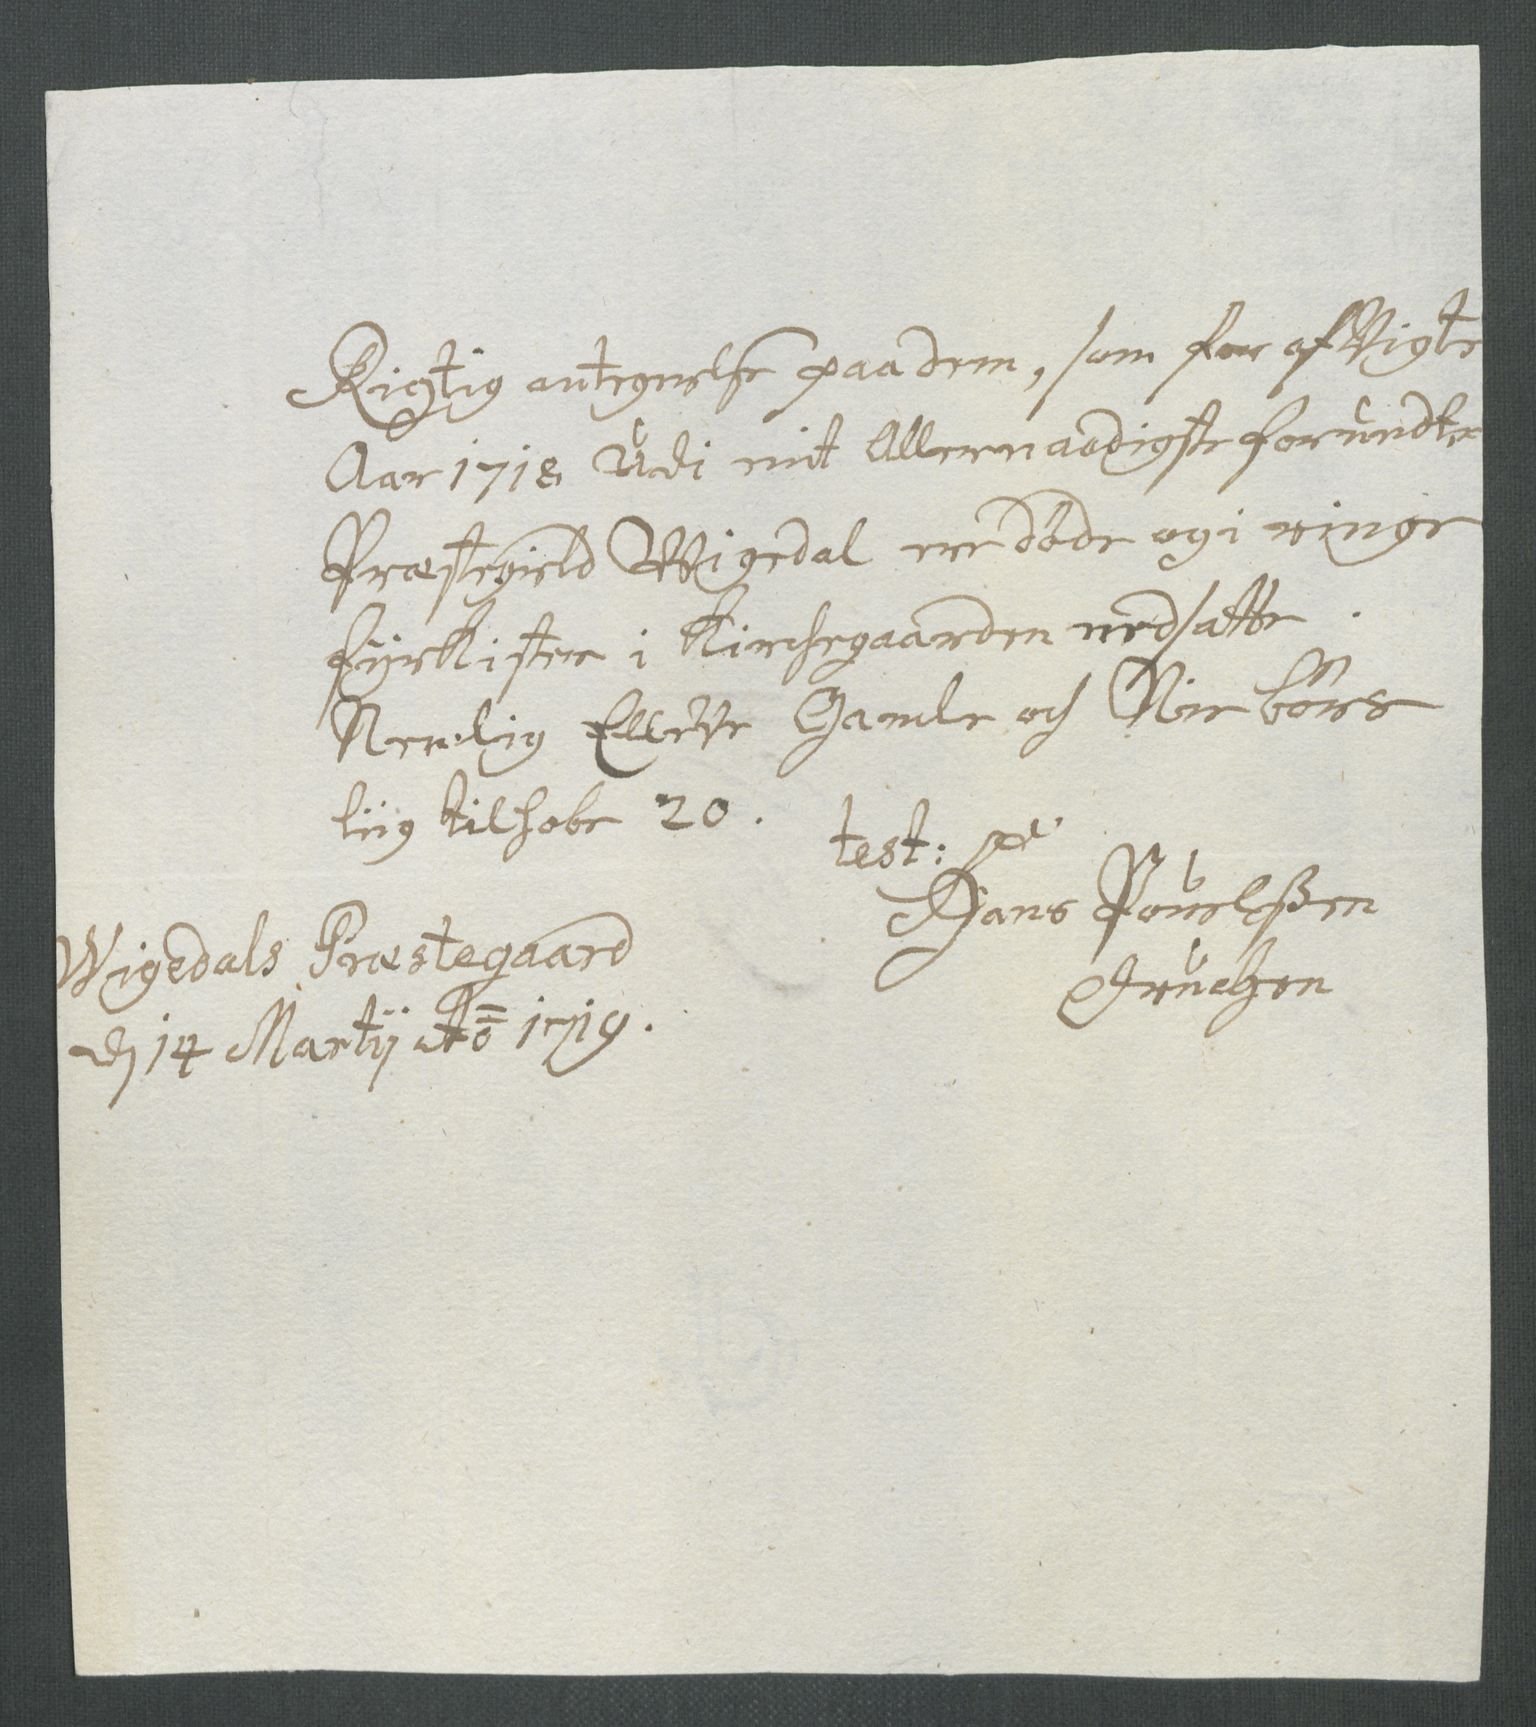 Rigtig antegnelse paa dem, som for afVigte
Aar 1718 Udi mit Allernaadigste forundte
Præstegield Wigedal ere døde og i ringe
fyrKister i Kirchegaarden nedsatte
Nemlig Elleve Gamle och Nie børs
lüg tilhobe 20.
test:
Hans Pouelßen
Wigedals Præstegaard
d 14 Martij Aō 1719.